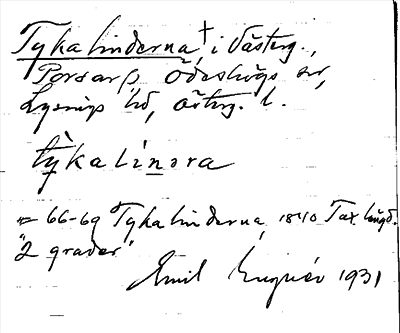 Tykalinderna, † i Västerg.,
Porsarp, Ödeshögs sn,
Lysings hd, Österg. l.
tỳkalinəra
= 66-69 Tykalinderna, 1840 Tax. längd.
"2 grader"
Emil 1931